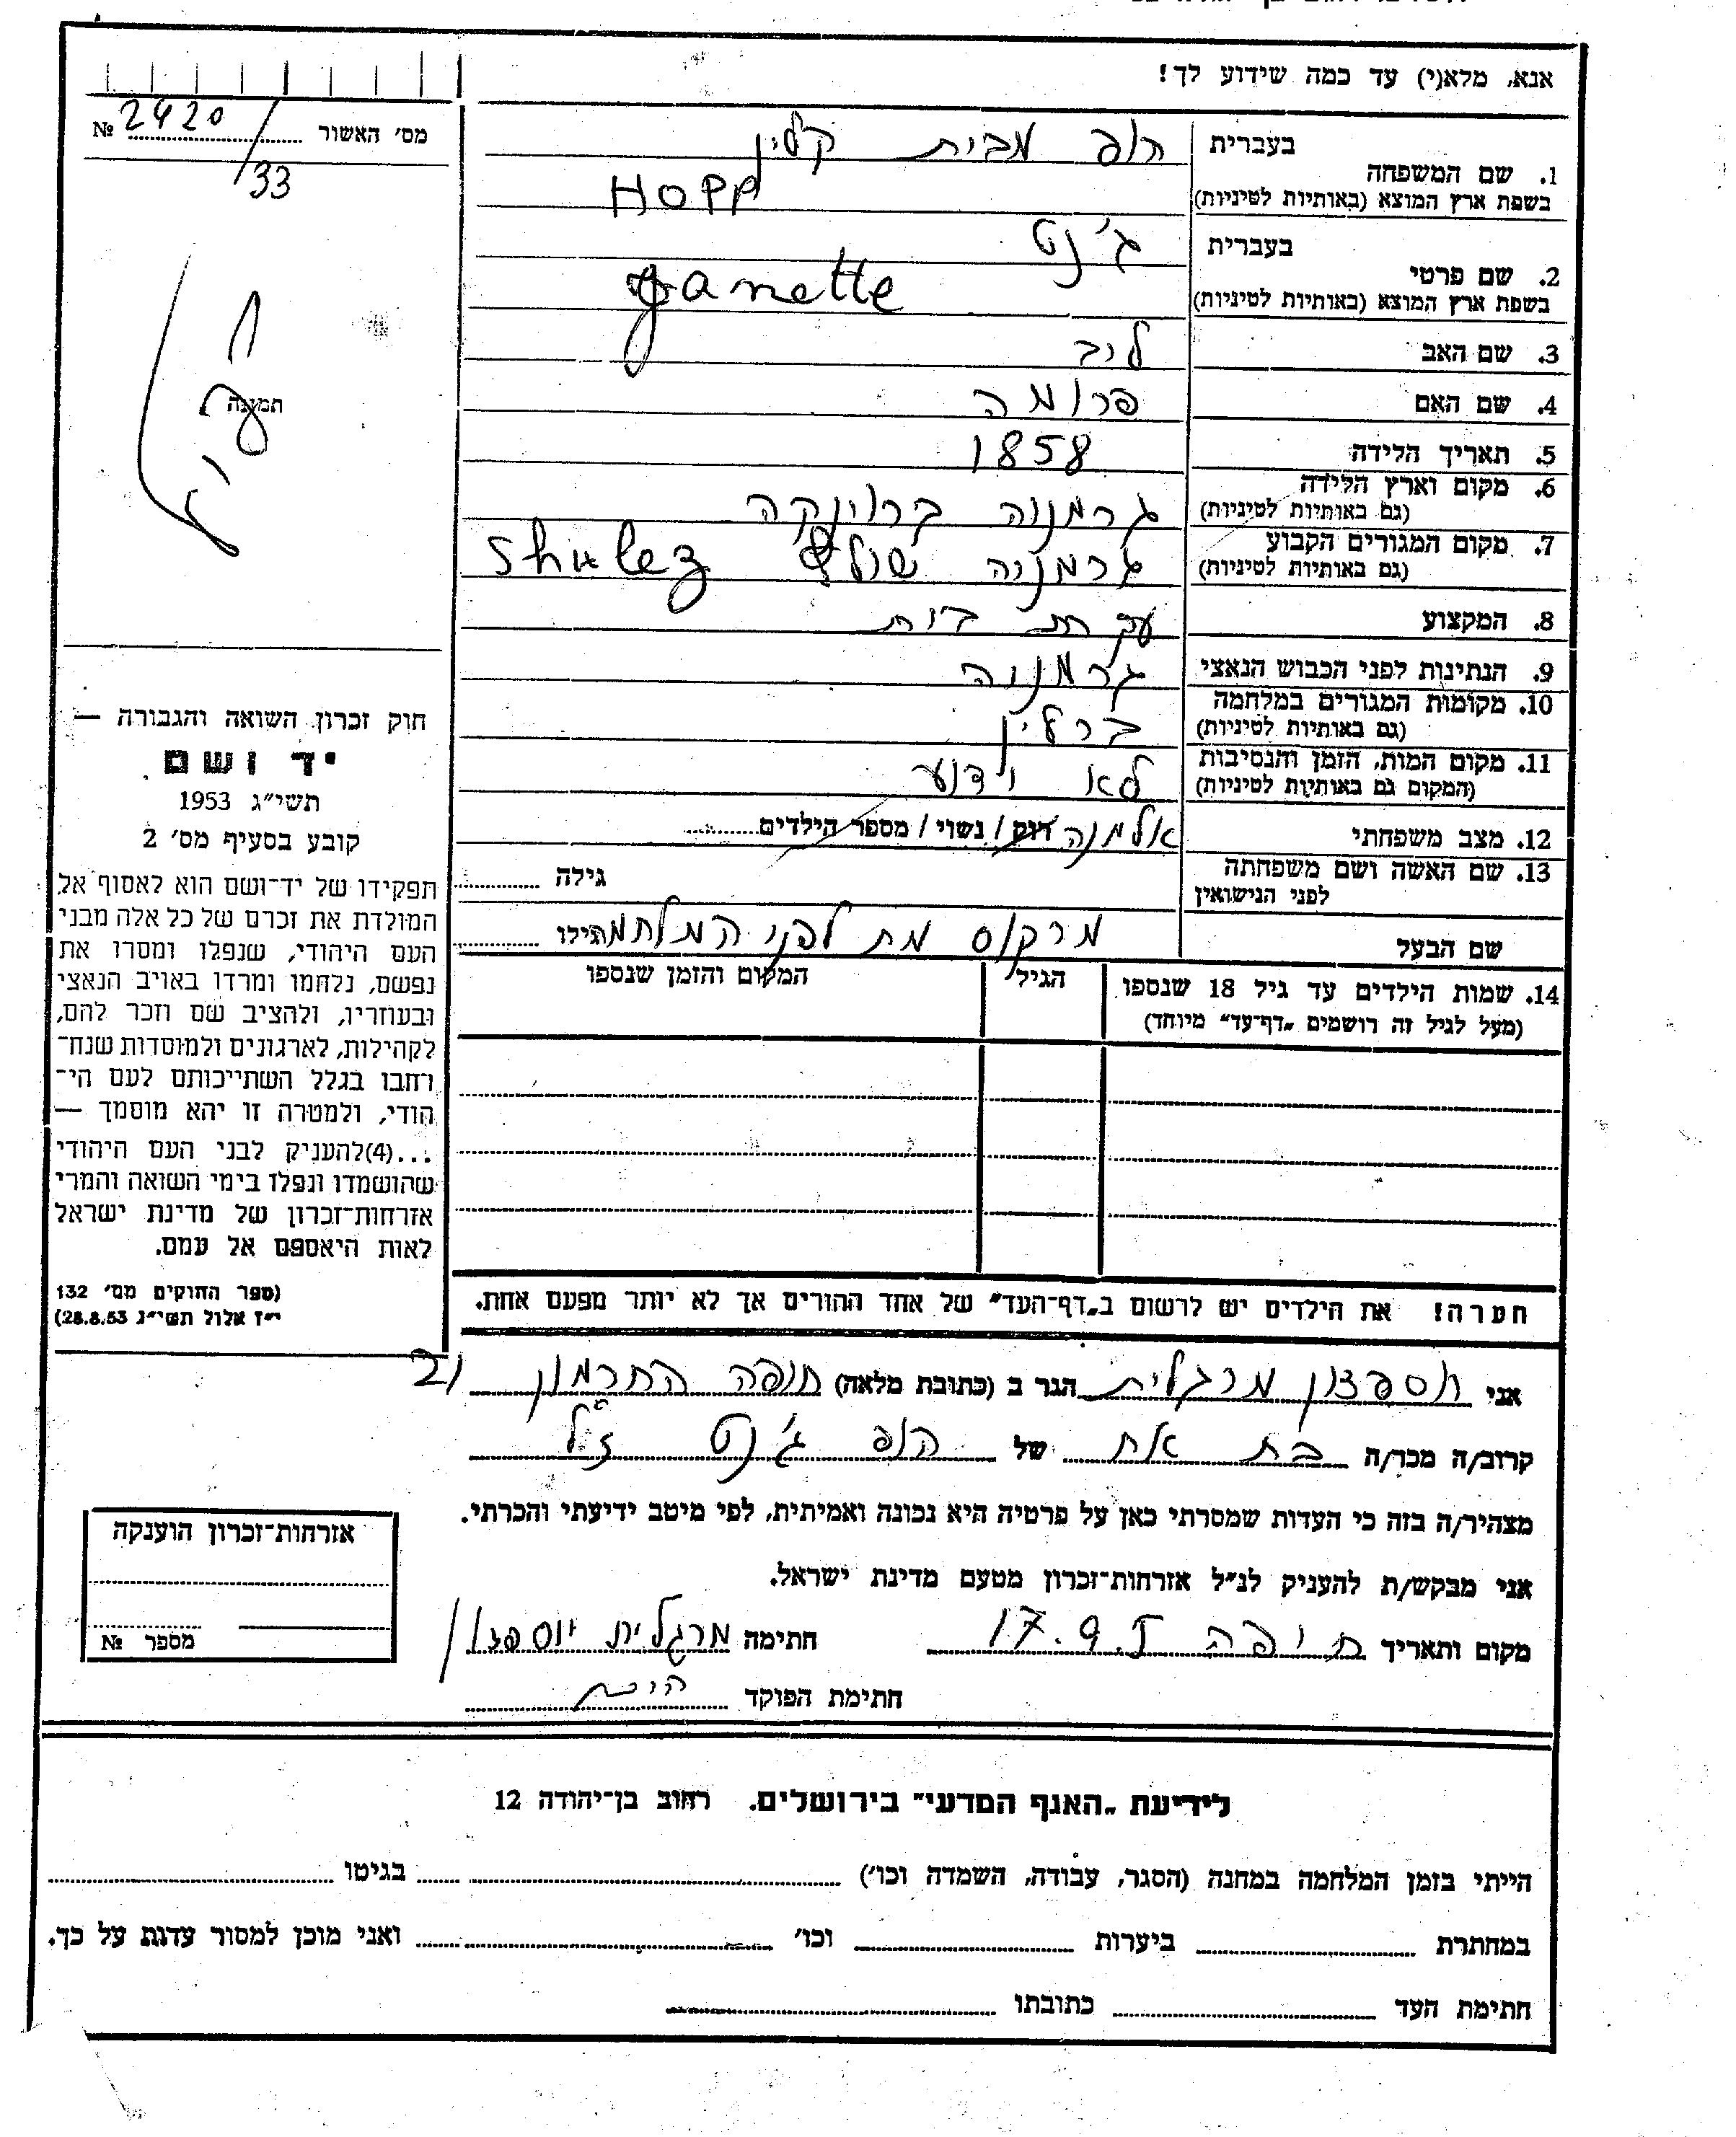 אנא, מלא(י) עד כמה שידוע לך!
מס׳ האשור № 2420/33
1. שם המשפחה
בעברית הופ מבית קליין
בשפת ארץ המוצא (באותיות לטיניות) HOPP
2. שם פרטי
בעברית ג׳נט
בשפת ארץ המוצא (באותיות לטיניות) Janette
3. שם האב ליב
4. שם האם פרומה
5. תאריך הלידה 1858
6. מקום וארץ הלידה
(גם באותיות לטיניות) גרמניה
7. מקום המגורים הקבוע
(גם באותיות לטיניות) גרמניה שולץ Shulez
8. המקצוע עקרת בית
9. הנתינות לפני הכבוש הנאצי גרמניה
10. מקומות המגורים במלחמה
(גם באותיות לטיניות) ברלין
11. מקום המות, הזמן והנסיבות
(המקום גם באותיות לטיניות) לא ידוע
12. מצב משפחתי אלמנה רוק / נשוי / מספר הילדים
13. שם האשה ושם משפחתה
לפני הנישואין
גילה
שם הבעל מרקוס מת לפני המלחמה גילו
14. שמות הילדים עד גיל 18 שנספו
(מעל לגיל זה רושמים „דף־עד״ מיוחד)
הגיל
המקום והזמן שנספו
תמונה
חוק זכרון השואה והגבורה —
יד ושם
תשי״ג 1953
קובע בסעיף מס׳ 2
תפקידו של יד־ושם הוא לאסוף אל
המולדת את זכרם של כל אלה מבני
העם היהודי, שנפלו ומסרו את
נפשם, נלחמו ומרדו באויב הנאצי
ובעוזריו, ולהציב שם וזכר להם,
לקהילות, לארגונים ולמוסדות שנח־
רחבו בגלל השתייכותם לעם הי־
הודי, ולמטרה זו יהא מוסמך —
...(4)להעניק לבני העם היהודי
שהושמדו ונפלו בימי השואה והמרי
אזרחות־זכרון של מדינת ישראל
לאות היאספם אל עמם.
(ספר החוקים מס׳ 132
י״ז אלול תשי״ג 28.8.53)
הערה! את הילדים יש לרשום ב„דף־העד״ של אחד ההורים אך לא יותר מפעם אחת.
אני יוספזון מרגלית הגר ב (כתובת מלאה) חיפה החרמון 21
קרוב/ה מכר/ה בת אח של הופ ג׳נט ז״ל
מצהיר/ה בזה כי העדות שמסרתי כאן על פרטיה היא נכונה ואמיתית, לפי מיטב ידיעתי והכרתי.
אני מבקש/ת להעניק לנ״ל אזרחות־זכרון מטעם מדינת ישראל.
מקום ותאריך חיפה 17.9. חתימה מרגלית יוספזון
חתימת הפוקד
אזרחות־זכרון הוענקה
מספר №
לידיעת „האגף המדעי״ בירושלים. רחוב בן־יהודה 12
הייתי בזמן המלחמה במחנה (הסגר, עבודה, השמדה וכו׳) בגיטו
במחתרת ביערות וכו׳ ואני מוכן למסור עדות על כך.
חתימת העד כתובתו